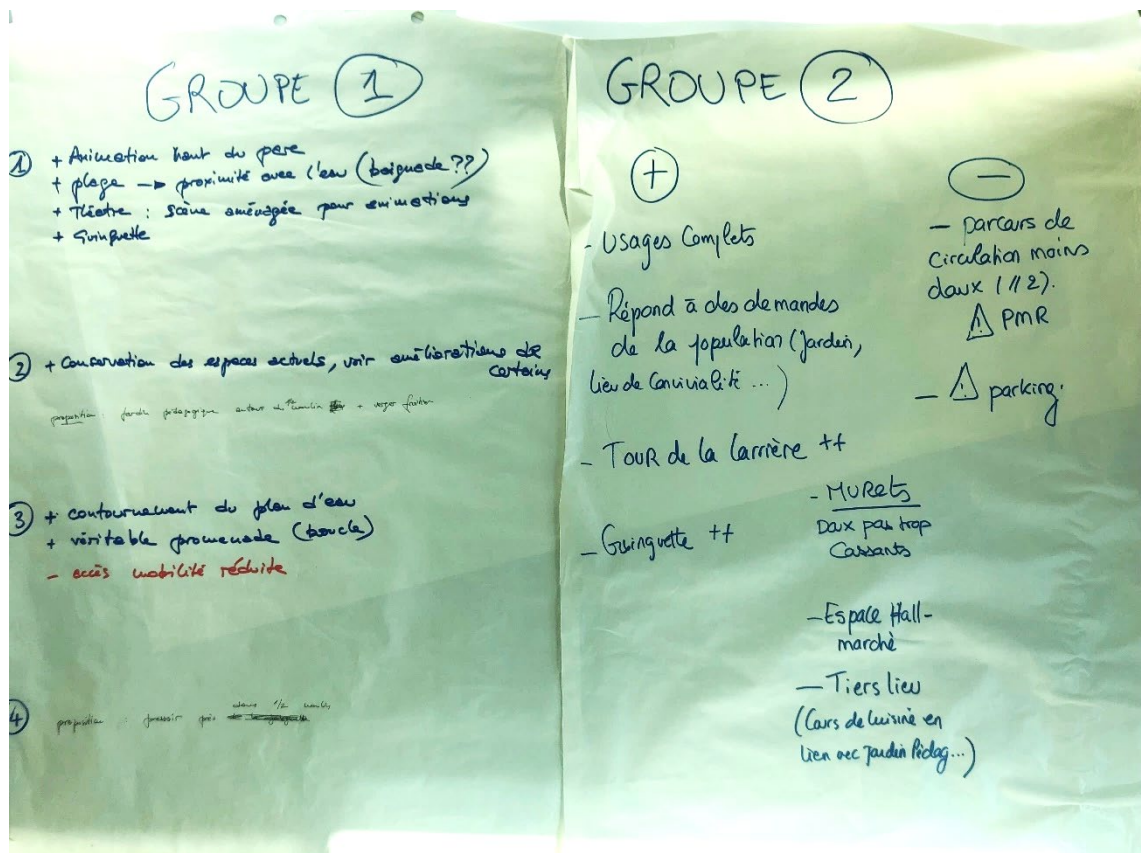 GROUPE 1
1 + Animation haut du parc
+ plage → proximité avec l'eau (baignade ??)
+ Théâtre : Scène aménagée pour animations
+ Guinguette
2 + Conservation des espaces actuels, voir améliorations de
certains
proposition : jardin pédagogique autour du moulin + verger fruitier
3 + contournement du plan d'eau
+ véritable promenade (boucle)
- accès mobilité réduite
4 proposition : pressoir près
GROUPE 2
+
- Usages Complets
- Répond à des demandes
de la population (Jardin,
lieu de Convivialité ...)
- TOUR de la Carrière ++
- Guinguette ++
- MURets
Doux pas trop
Cassants
- Espace Hall-
marché
- Tiers lieu
(Cours de Cuisine en
lien avec Jardin Pédag...)
-
- parcours de
Circulation moins
doux (// 2).
⚠ PMR
- ⚠ parking.